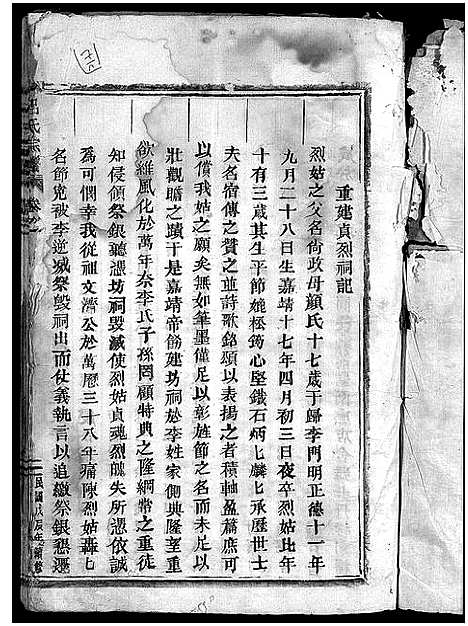 重建貞烈祠記
烈姑之父名尚政母顏氏十七歲于歸李門明正德十一年
九月二十八日生嘉靖十七年四月初三日夜卒烈姑比年
十有三歲其生平節媲松筠心堅鐵石炳炳麟麟承歷世士
夫名宿傳之贊之並詩歌銘頌以表揚之者積軸盈篇庶可
以償我姑之願矣無如筆墨僅足以彰姓節之名而未足以
壯觀瞻之蹟于是嘉靖帝飭建坊祠於李姓家側典隆望重
欲維風化於萬年奈李氏子孫罔顧特典之隆綱常之重徒
知侵領祭銀聽憑坊祠毀滅使烈姑貞魂烈魄失所憑依誠
為可憫幸我從祖文濟公於萬曆三十八年痛陳烈姑轟七
名節兔被李逆滅祭毀祠出而仗義執言以追繳祭銀懇遷
呂氏宗譜
卷之
民國戊辰年續修